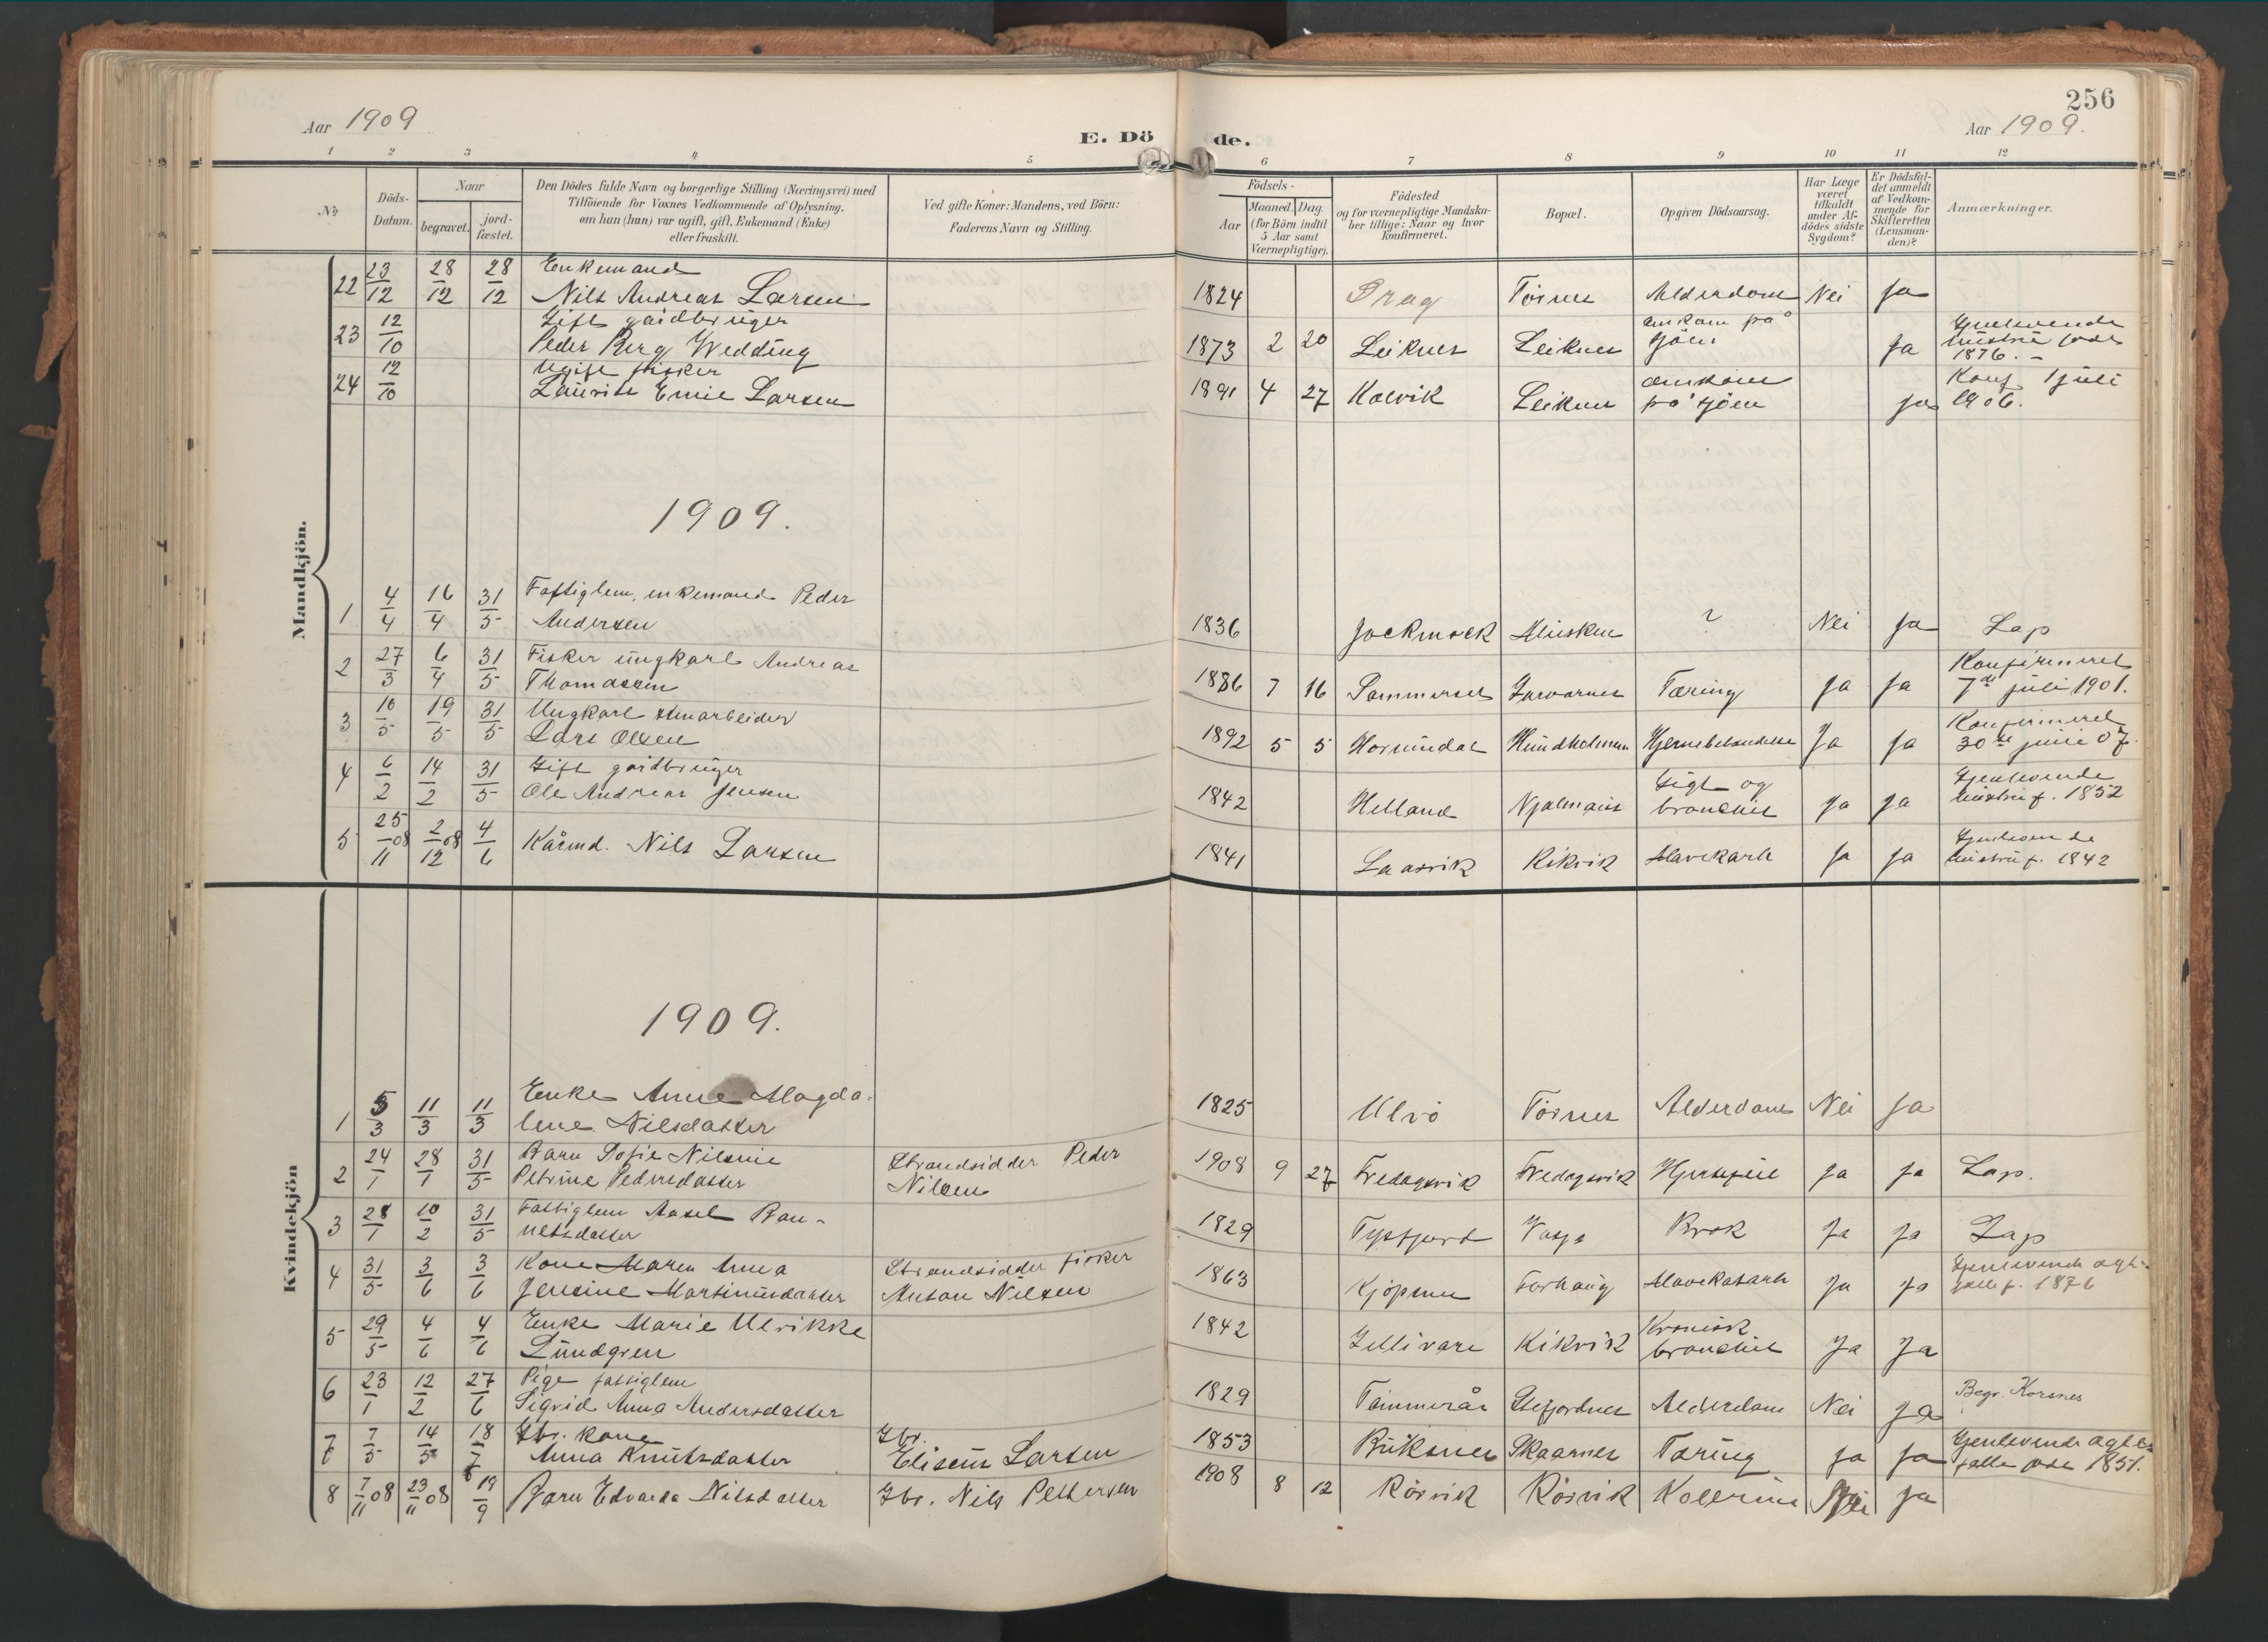 256
Aar 1909
E. Döde.
Aar 1909.
1 2 3 4 5 6 7 8 9 10 11 12
№
Döds-Datum.
Naar
begravet.
jordfæstet.
Den Dödes fulde Navn og borgerlige Stilling (Næringsvei) med
Tilföiende for Voxnes Vedkommende af Oplysning,
om han (hun) var ugift, gift, Enkemand (Enke)
eller fraskilt.
Ved gifte Koner: Mandens, ved Börn:
Faderens Navn og Stilling.
Födsels-
Aar
Maaned. Dag.
(for Börn indtil
5 Aar samt
Værnepligtige).
Födested
og for værnepligtige Mandska-
ber tillige: Naar og hvor
konfirmeret.
Bopæl.
Opgiven Dödsaarsag.
Har Læge
været
tilkaldt
under Af-
dödes sidste
Sygdom?
Er Dödsfal-
det anmeldt
af Vedkom-
mende for
Skifteretten
(Lensman-
den)?
Anmærkninger.
Mandkjön.
22 23/12 28/12 28/12 Enkemand
Nils Andreas Larsen 1824 Drag Törnes Alderdom Nei Ja
23 12/10 Gift gårdbruger
Peder Berg Wedding 1873 2 20 Leiknes Leiknes omkom på
sjöen Ja Gjenlevende
hustru föde
1876. -
24 12/10 Ugift fisker
Laurits Emil Larsen 1891 4 27 Kalvik Leiknes omkom
på sjöen ja Konf. 1 juli
1906.
1909.
1 4/4 16/4 31/5 Fattiglem, enkemand Peder
Andersen 1836 Jockmock Musken ? Nei Ja Lap
2 27/3 6/4 31/5 Fisker ungkarl Andreas
Thomassen 1886 7 16 Sommerset Tæring Ja Ja Konfirmeret
7de juli 1901.
3 10/5 19/5 31/5 Ungkarl
Lars Olsen 1892 5 5 Hornindal Hundholmen Hjernebetændelse Ja Ja Konfirmeret
30te juni 07.
4 6/2 14/2 31/5 Gift gårdbruger
Ole Andreas Jensen 1842 Helland Njalmais Gigt og
bronchit Ja Ja Gjenlevende
hustru f. 1852
5 25/11-08 2/12-08 4/6 Kårmd. Nils Larsen 1841 Laasvik Kikvik Mavekatarh Ja Ja Gjenlevende
hustru f. 1842
Kvindekjön
1909.
1 5/3 11/3 11/3 Enke Anne Magda-
lene Nilsdatter 1825 Ulvö Törnes Alderdom Nei Ja
2 24/1 28/1 31/5 Barn Sofie Nilsine
Petrine Pedersdatter Strandsidder Peder
Nilsen 1908 9 27 Fredagsvik Fredagsvik Hjertefeil Ja Ja Lap.
3 28/1 10/2 31/5 Fattiglem Aasel Ban-
netsdatter 1829 Tysfjord Brok Ja Ja Lap
4 31/5 3/6 3/6 Kone Maren Anna
Jensine Martinusdatter Strandsidder fisker
Anton Nilsen 1863 Kjöpsnes Forhaug Mavekatarh Ja Ja Gjenlevende ægte-
fælle f. 1876
5 29/5 4/6 4/6 Enke Marie Ulrikke
Lundgren 1842 Gellivare Kikvik Kronisk
bronchit Ja Ja
6 23/1 12/2 27/6 Pige fattiglem
Sigrid Anna Andersdatter 1829 Tömmerås Stefjordnes Alderdom Nei Ja Begr. Korsnes
7 7/5 14/5 18/7 Gbr. kone
Anna Knutsdatter Gbr.
Eliseus Larsen 1853 Buksnes Skaarnes Tæring Ja Ja Gjenlevende ægte-
fælle föde 1851.
8 7/11 08 23/11 08 19/9 Barn Edvarda Nilsdatter Gbr. Nils Pettersen 1908 8 12 Rörvik Rörvik Kollerine Nei Ja